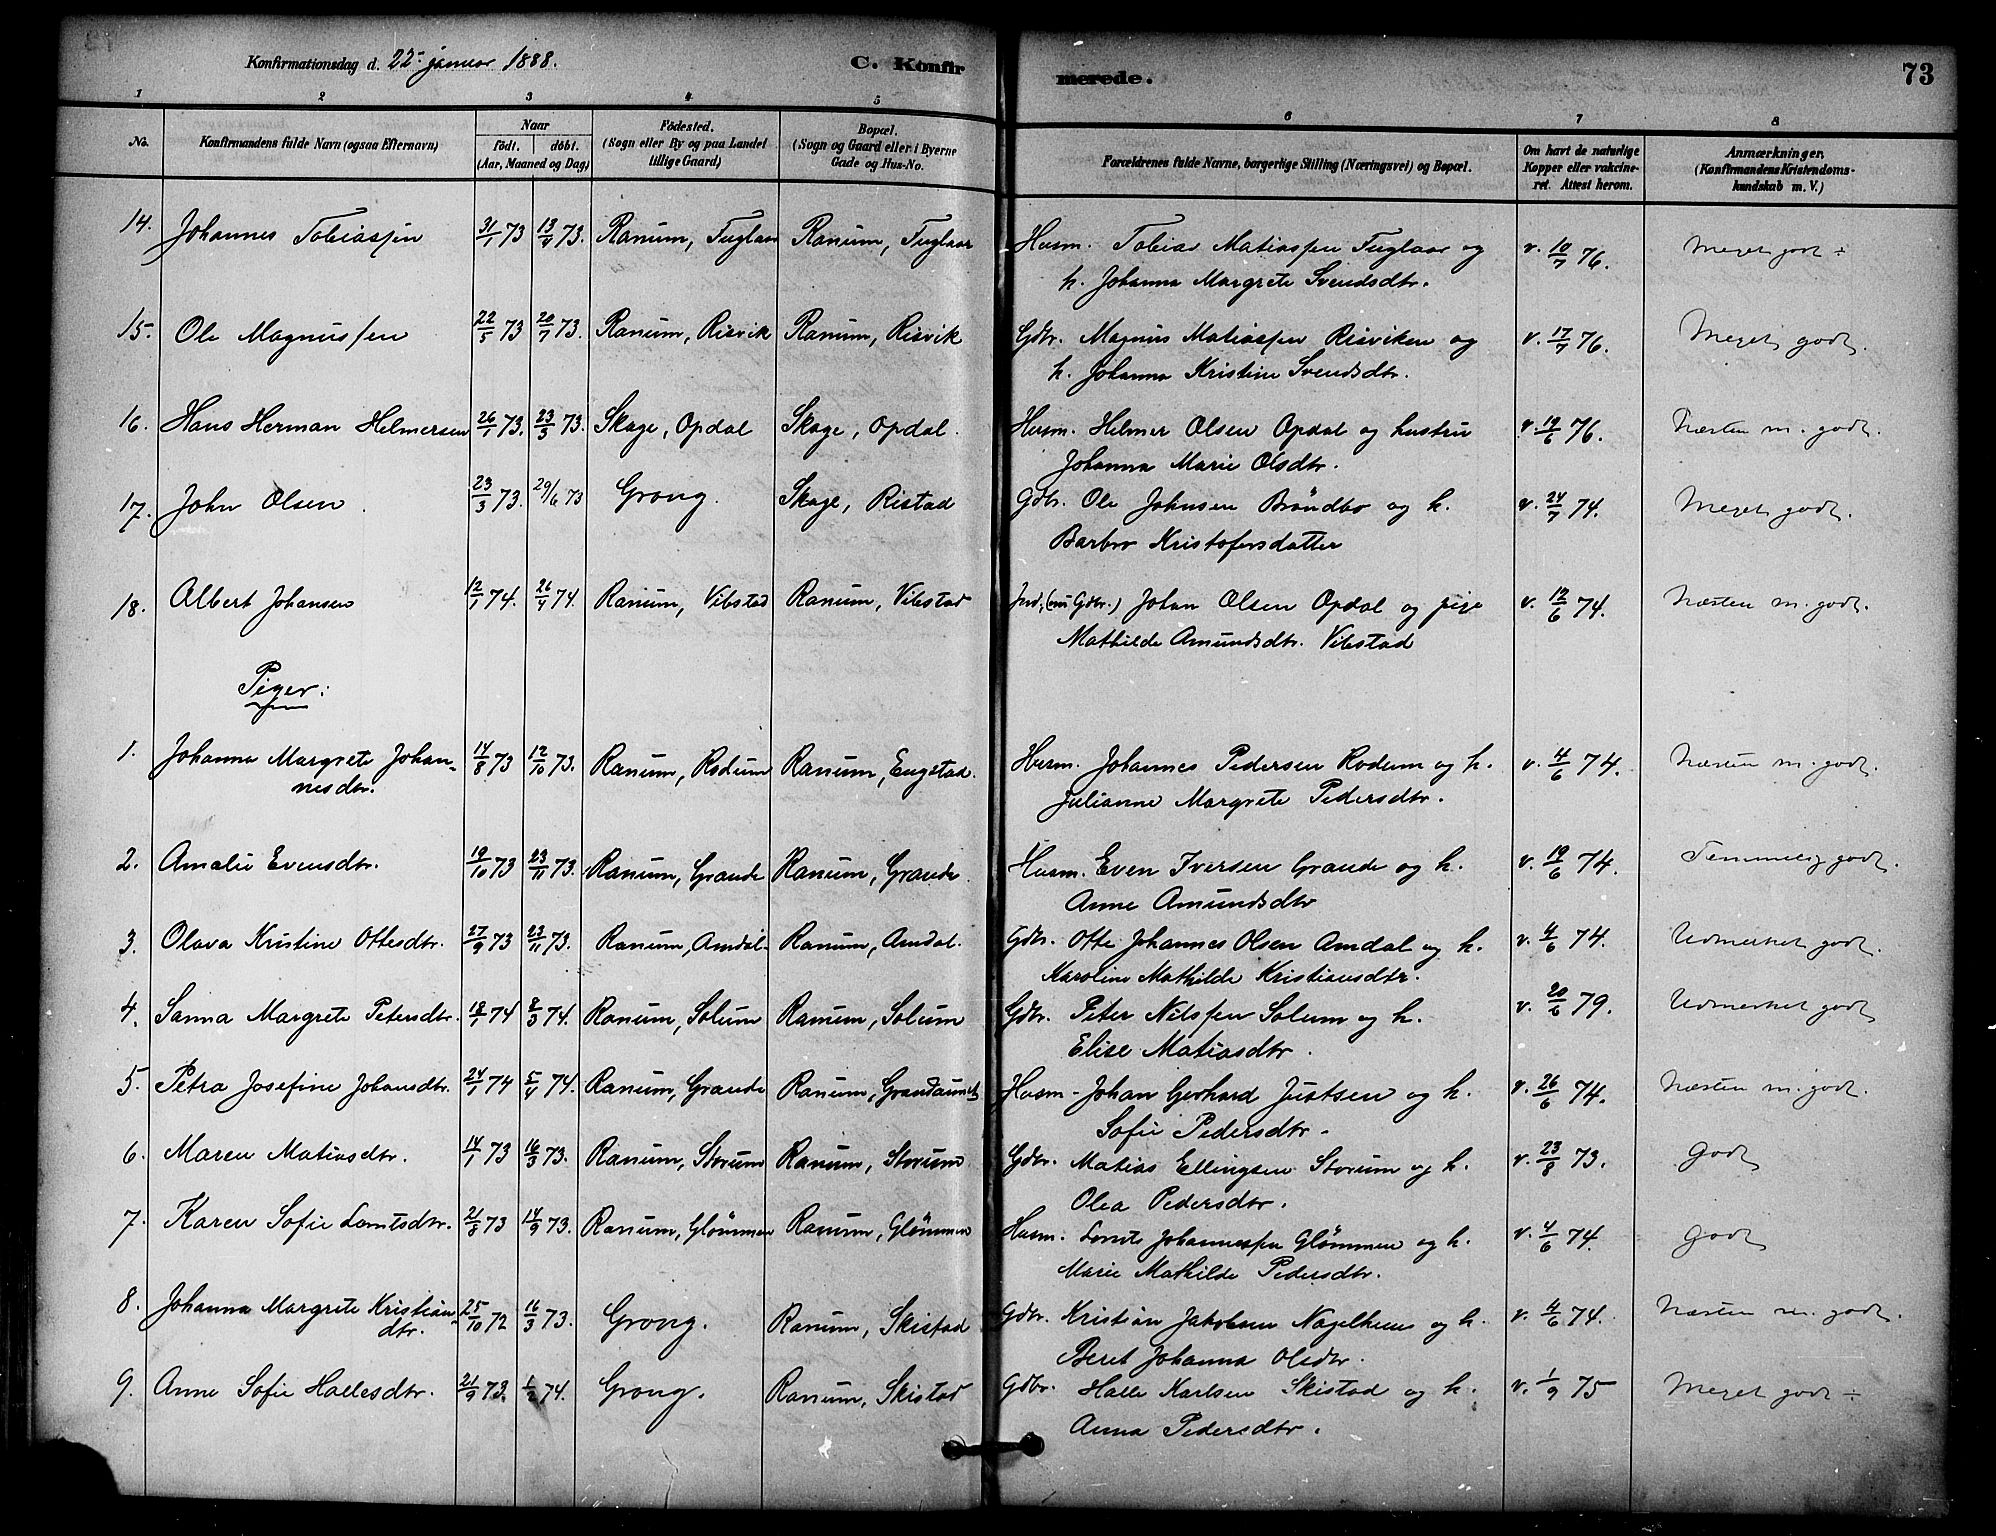 Konfirmationsdag d. 22- januar 1888. C. Konfirmerede. 73
1 2 3 4 5 6 7 8
No. Konfirmandens fulde Navn (ogsaa Efternavn) Naar födt. döbt. (Aar, Maaned og Dag) Födested. (Sogn eller By og paa Landet tillige Gaard) Bopæl. (Sogn og Gaard eller i Byerne Gade og Hus-No. Forældrenes fulde Navne, borgerlige Stilling (Næringsvei) og Bopæl. Om havt de naturlige Kopper eller vakcineret. Attest herom. Anmærkninger. (Konfirmandens Kristendomskundskab m. V.)
14. Johannes Tobiassen 31/1 73 13/4 73. Ranum, Fuglaar Ranum, Fuglaar Husm. Tobias Matiassen Fuglaar og v. 10/7 76. Meget godt ÷
h. Johanna Margrete Svendsdtr.
15. Ole Magnussen 22/5 73 20/7 73. Ranum, Risvik Ranum, Risvik Gdbr. Magnus Matiassen Risviken og v. 17/7 76. Meget godt.
h. Johanna Kristine Svendsdtr.
16. Hans Herman Helmersen 26/1 73. 23/3 73. Skage, Opdal Skage, Opdal. Husm. Helmer Olsen Opdal og hustru v. 19/6 76. Næsten m. godt.
Johanna Marie Olsdtr.
17. John Olsen 23/3 73. 29/6 73 Grong. Skage, Ristad Gdbr. Ole Johnsen Bröndbo og h. v. 24/7 74. Meget godt.
Barbro Kristofersdatter
18. Albert Johansen 12/1 74. 26/4 74. Ranum, Vibstad Ranum, Vibstad Ind. (nu Gdbr.) Johan Olsen Opdal og pige v. 12/6 74. Næsten m. godt.
Mathilde Amundsdtr. Vibstad
Piger:
1. Johanna Margrete Johan- 14/8 73 12/10 73. Ranum, Rodum Ranum, Engstad. Husm. Johannes Pedersen Rodum og h. v. 4/6 74. Næsten m. godt.
nesdtr. Julianne Margrete Pedersdtr.
2. Amalie Evensdtr. 19/10 73 23/11 73. Ranum, Grande Ranum, Grande. Husm. Even Iversen Grande og h. v. 19/6 74. Temmelig godt.
Anne Amundsdtr
3. Olava Kristine Ottesdtr. 27/9 73 23/11 73. Ranum, Amdal. Ranum, Amdal. Gdbr. Otte Johannes Olsen Amdal og h. v. 4/6 74. Udmerket godt
Karoline Mathilde Kristiansdtr.
4. Sanna Margrete Petersdtr. 18/1 74 8/3 74. Ranum, Solum Ranum, Solum Gdbr. Peter Nilssen Solum og h. v. 20/6 79. Udmerket godt
Elise Matiasdtr.
5. Petra Josefine Johansdtr. 24/1 74 5/4 74. Ranum, Grande Ranum, Husm- Johan Gerhard Justsen og h. v. 26/6 74. Næsten m. godt.
Sofie Pedersdtr.
6. Maren Matiasdtr. 14/1 73 16/3 73. Ranum, Storum Ranum, Storum Gdbr. Matias Ellingsen Storum og h. v. 23/8 73. Godt
Olea Pedersdtr.
7. Karen Sofie Lorntsdtr. 21/8 73 14/9 73. Ranum, Glömmen Ranum, Glömmen Husm. Lornts Johannessen Glömmen og h. v. 4/6 74. Godt
Marie Mathilde Pedersdtr.
8. Johanna Margrete Kristian- 25/10 72 16/3 73. Grong. Ranum, Skistad Gdbr. Kristian Jakobsen og h. v. 4/6 74. Næsten m. godt.
dtr. Beret Johanna Olsdtr.
9. Anne Sofie Hallesdtr. 21/9 73. 1/2 74. Grong. Ranum, Skistad Gdbr. Halle Karlsen Skistad og h. v. 1/9 75 Meget godt ÷
Anna Pedersdtr.